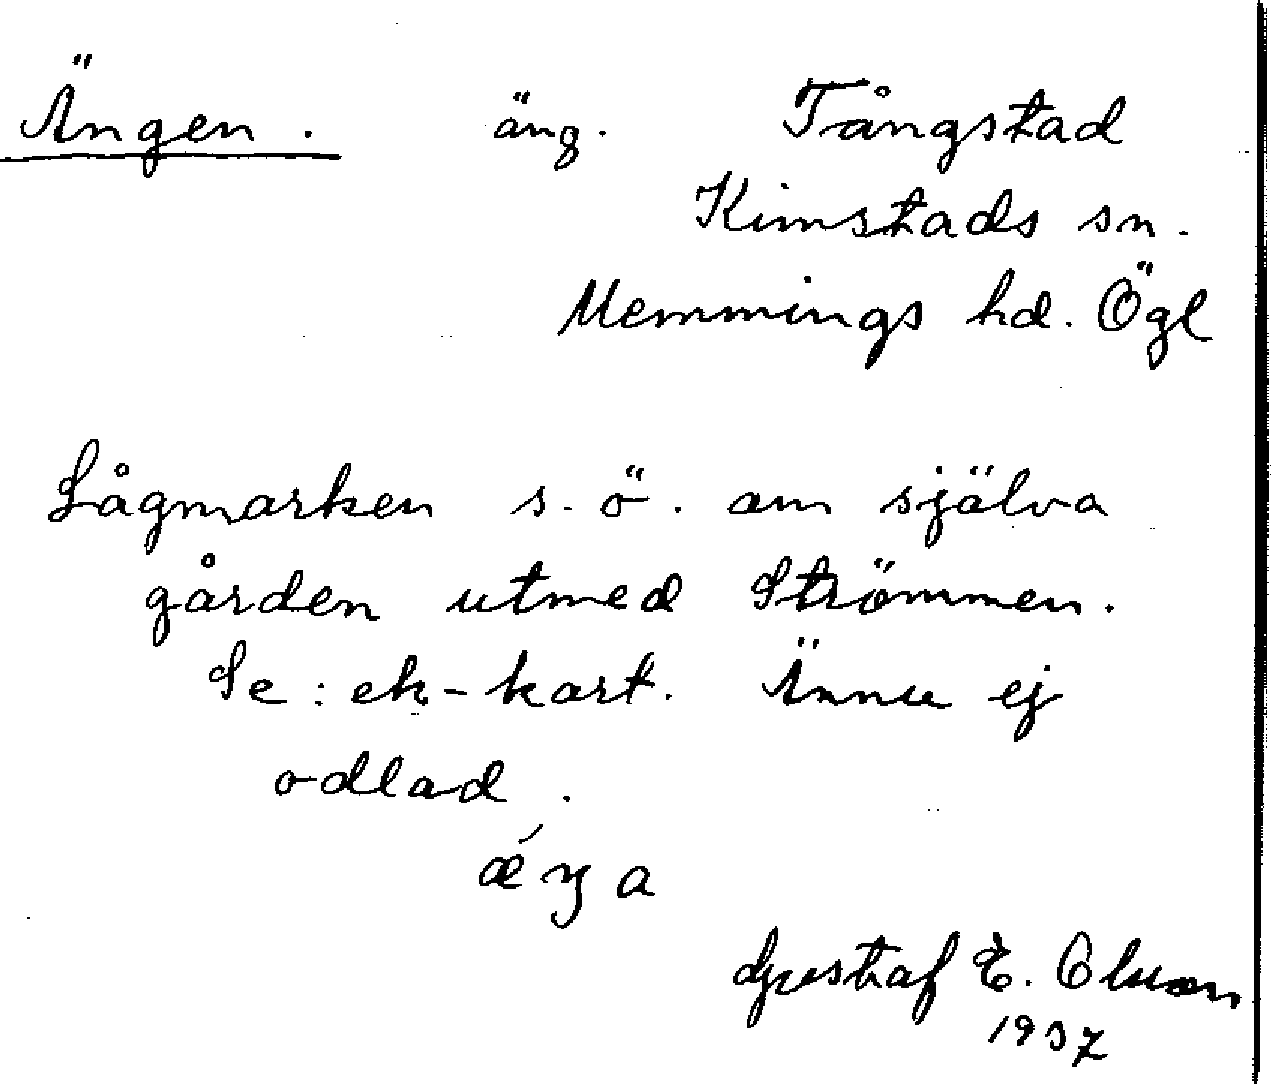 Ängen. äng. Tångstad
Kimstads sn.
Memmings hd. Ögl
Lågmarken s.ö. om själva
gården utmed Strömmen.
Se: ek-kart. Ännu ej
odlad.
ǽŋa
Gustaf E. Olsson
1937